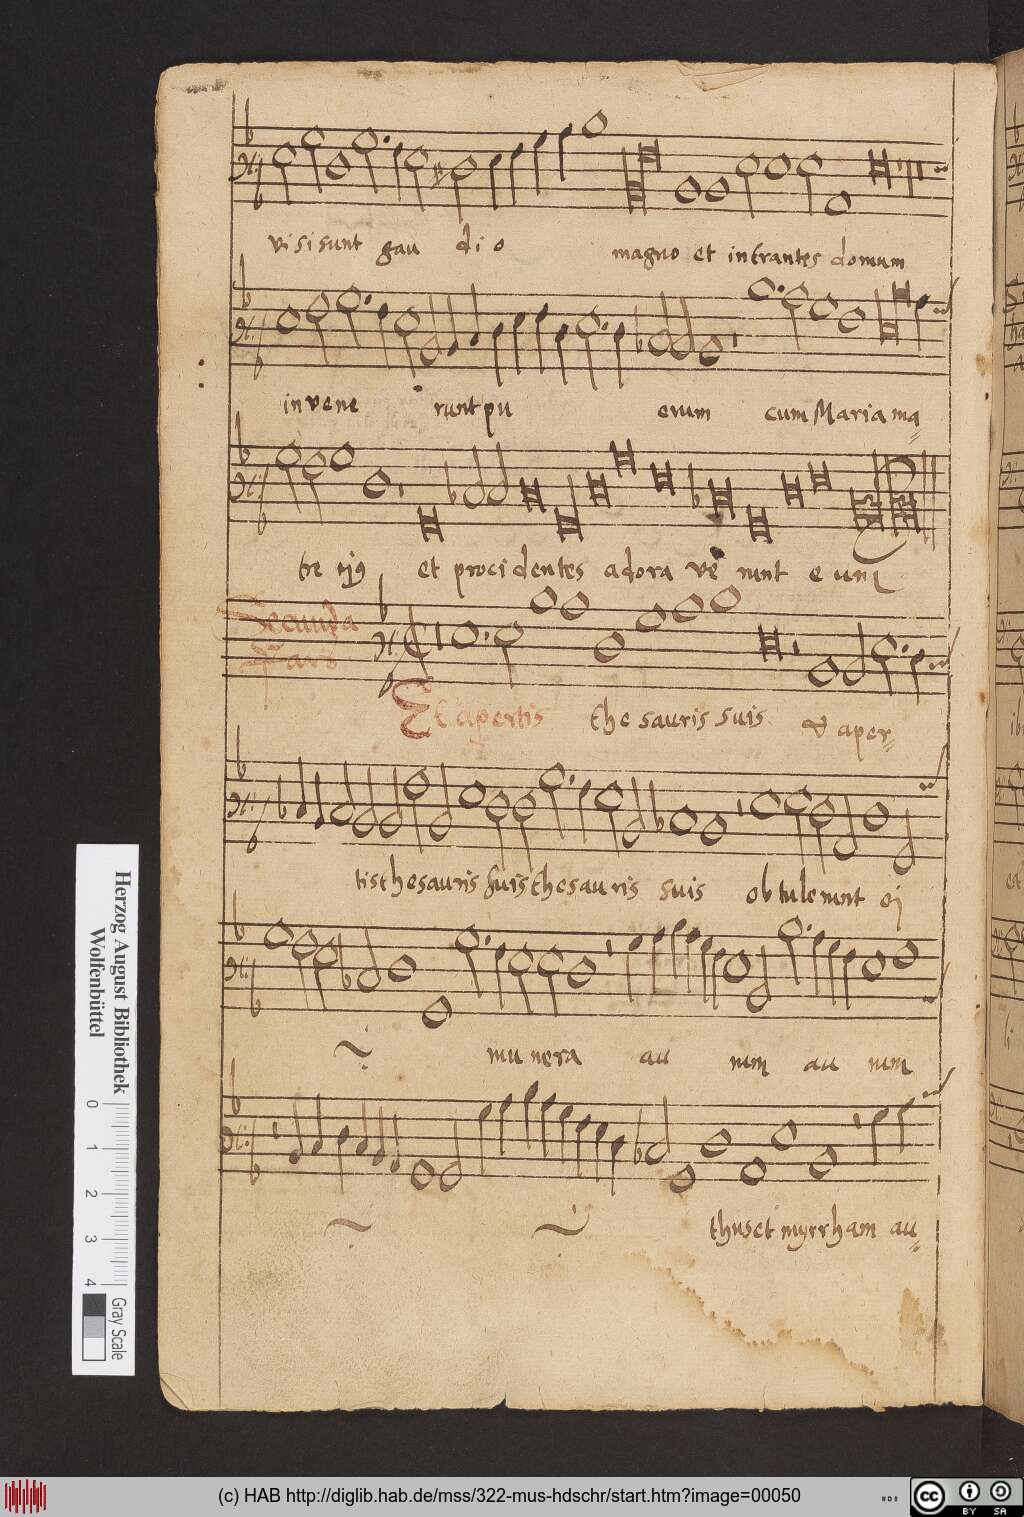 visi sunt gau di o magno et intrantes domum
invene runt pu erum cum Maria ma
tre ej9 et procidentes adora ve runt e um
Secunda
Pars
Et apertis the sauris suis aper
tis thesauris suis thesauris suis obtulerunt ej
mu nera au rum au rum
thus et myrrham au
Herzog August Bibliothek
Wolfenbüttel
0 1 2 3 4
Gray Scale
(c) HAB http://diglib.hab.de/mss/322-mus-hdschr/start.htm?image=00050
cc BY SA